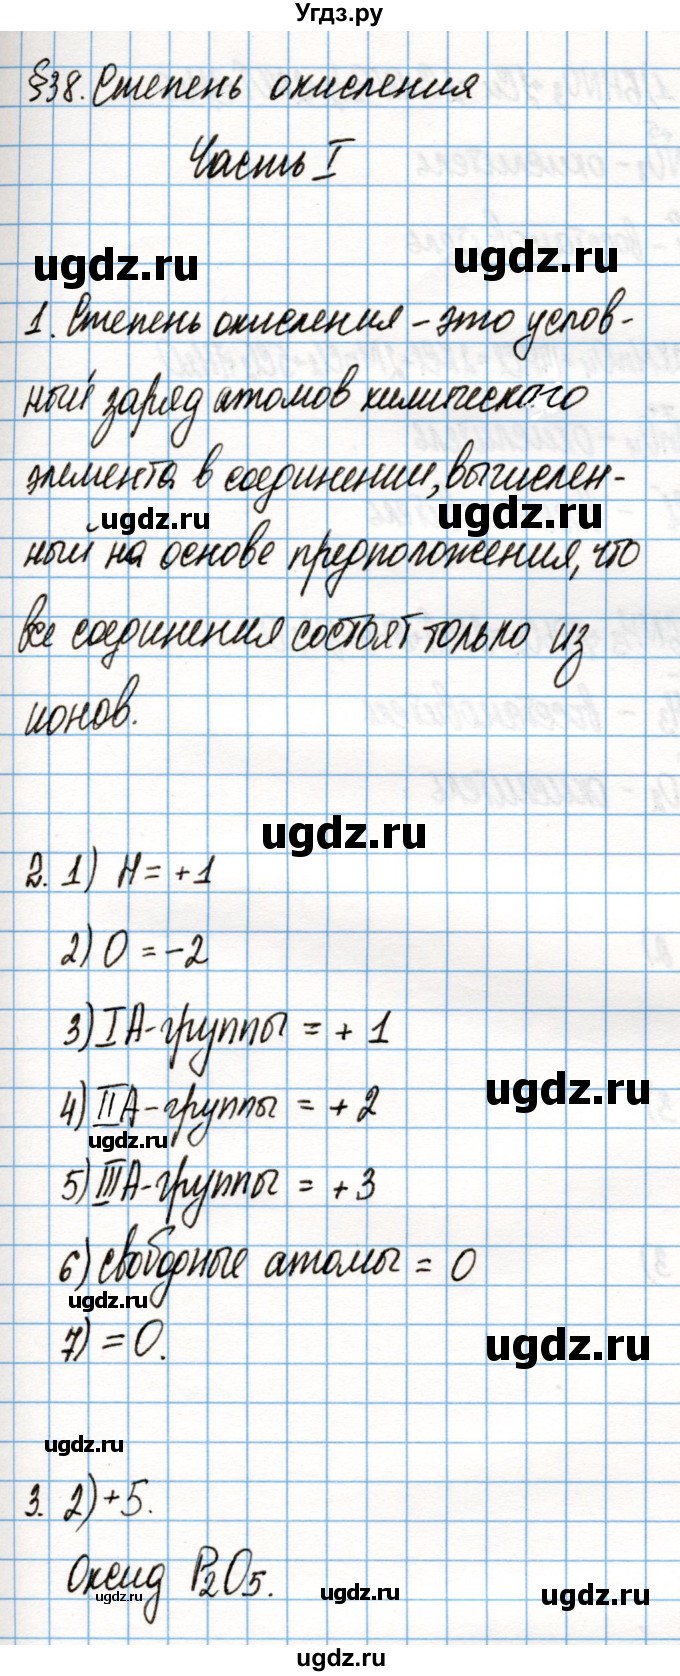 Угдз.ру
§38. Степень окисления
Часть I
ugdz.ru
ugdz.ru
1. Степень окисления – это услов-
ный заряд атомов химического
элемента в соединении, вычислен-
ugdz.ru
ugdz.ru
ный на основе предположения, что
все соединения состоят только из
ионов.
ugdz.ru
2. 1) H = +1
2) O = -2
3) IA-группы = +1
ugdz.ru
4) IIA-группы = +2
ugdz.ru
5) IIIA-группы = +3
6) свободные атомы = 0
ugdz.ru
7) = 0.
ugdz.ru
ugdz.ru
3. 2) +5.
Оксид P₂O₅.
ugdz.ru
ugdz.ru
ugdz.ru
ugdz.ru